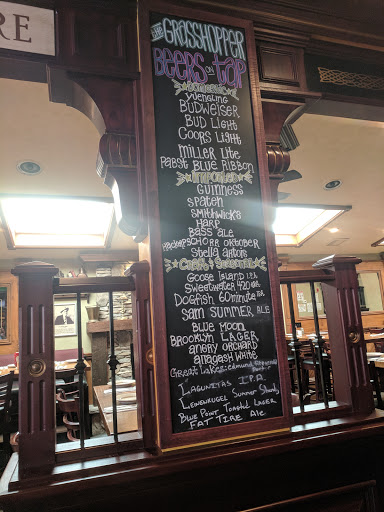 RE
THE GRASSHOPPER
BEERS ON TAP
DOMESTIC
YUENGLING
BUDWEISER
BUD LIGHT
COORS LIGHT
MILLER LITE
PABST BLUE RIBBON
IMPORTED
GUINNESS
SPATEN
SMITHWICK'S
HARP
BASS ALE
HACKER PSCHORR OKTOBER
STELLA ARTOIS
CRAFT & SEASONAL
GOOSE ISLAND I.P.A
SWEETWATER 420
DOGFISH 60 MINUTE IPA
SAM SUMMER ALE
BLUE MOON
BROOKLYN LAGER
ANGRY ORCHARD
ALLAGASH WHITE
GREAT LAKES: EDMUND FITZGERALD PORTER
LAGUNITAS I.P.A.
LEINENKUGEL SUMMER SHANDY
BLUE POINT TOASTED LAGER
FAT TIRE ALE